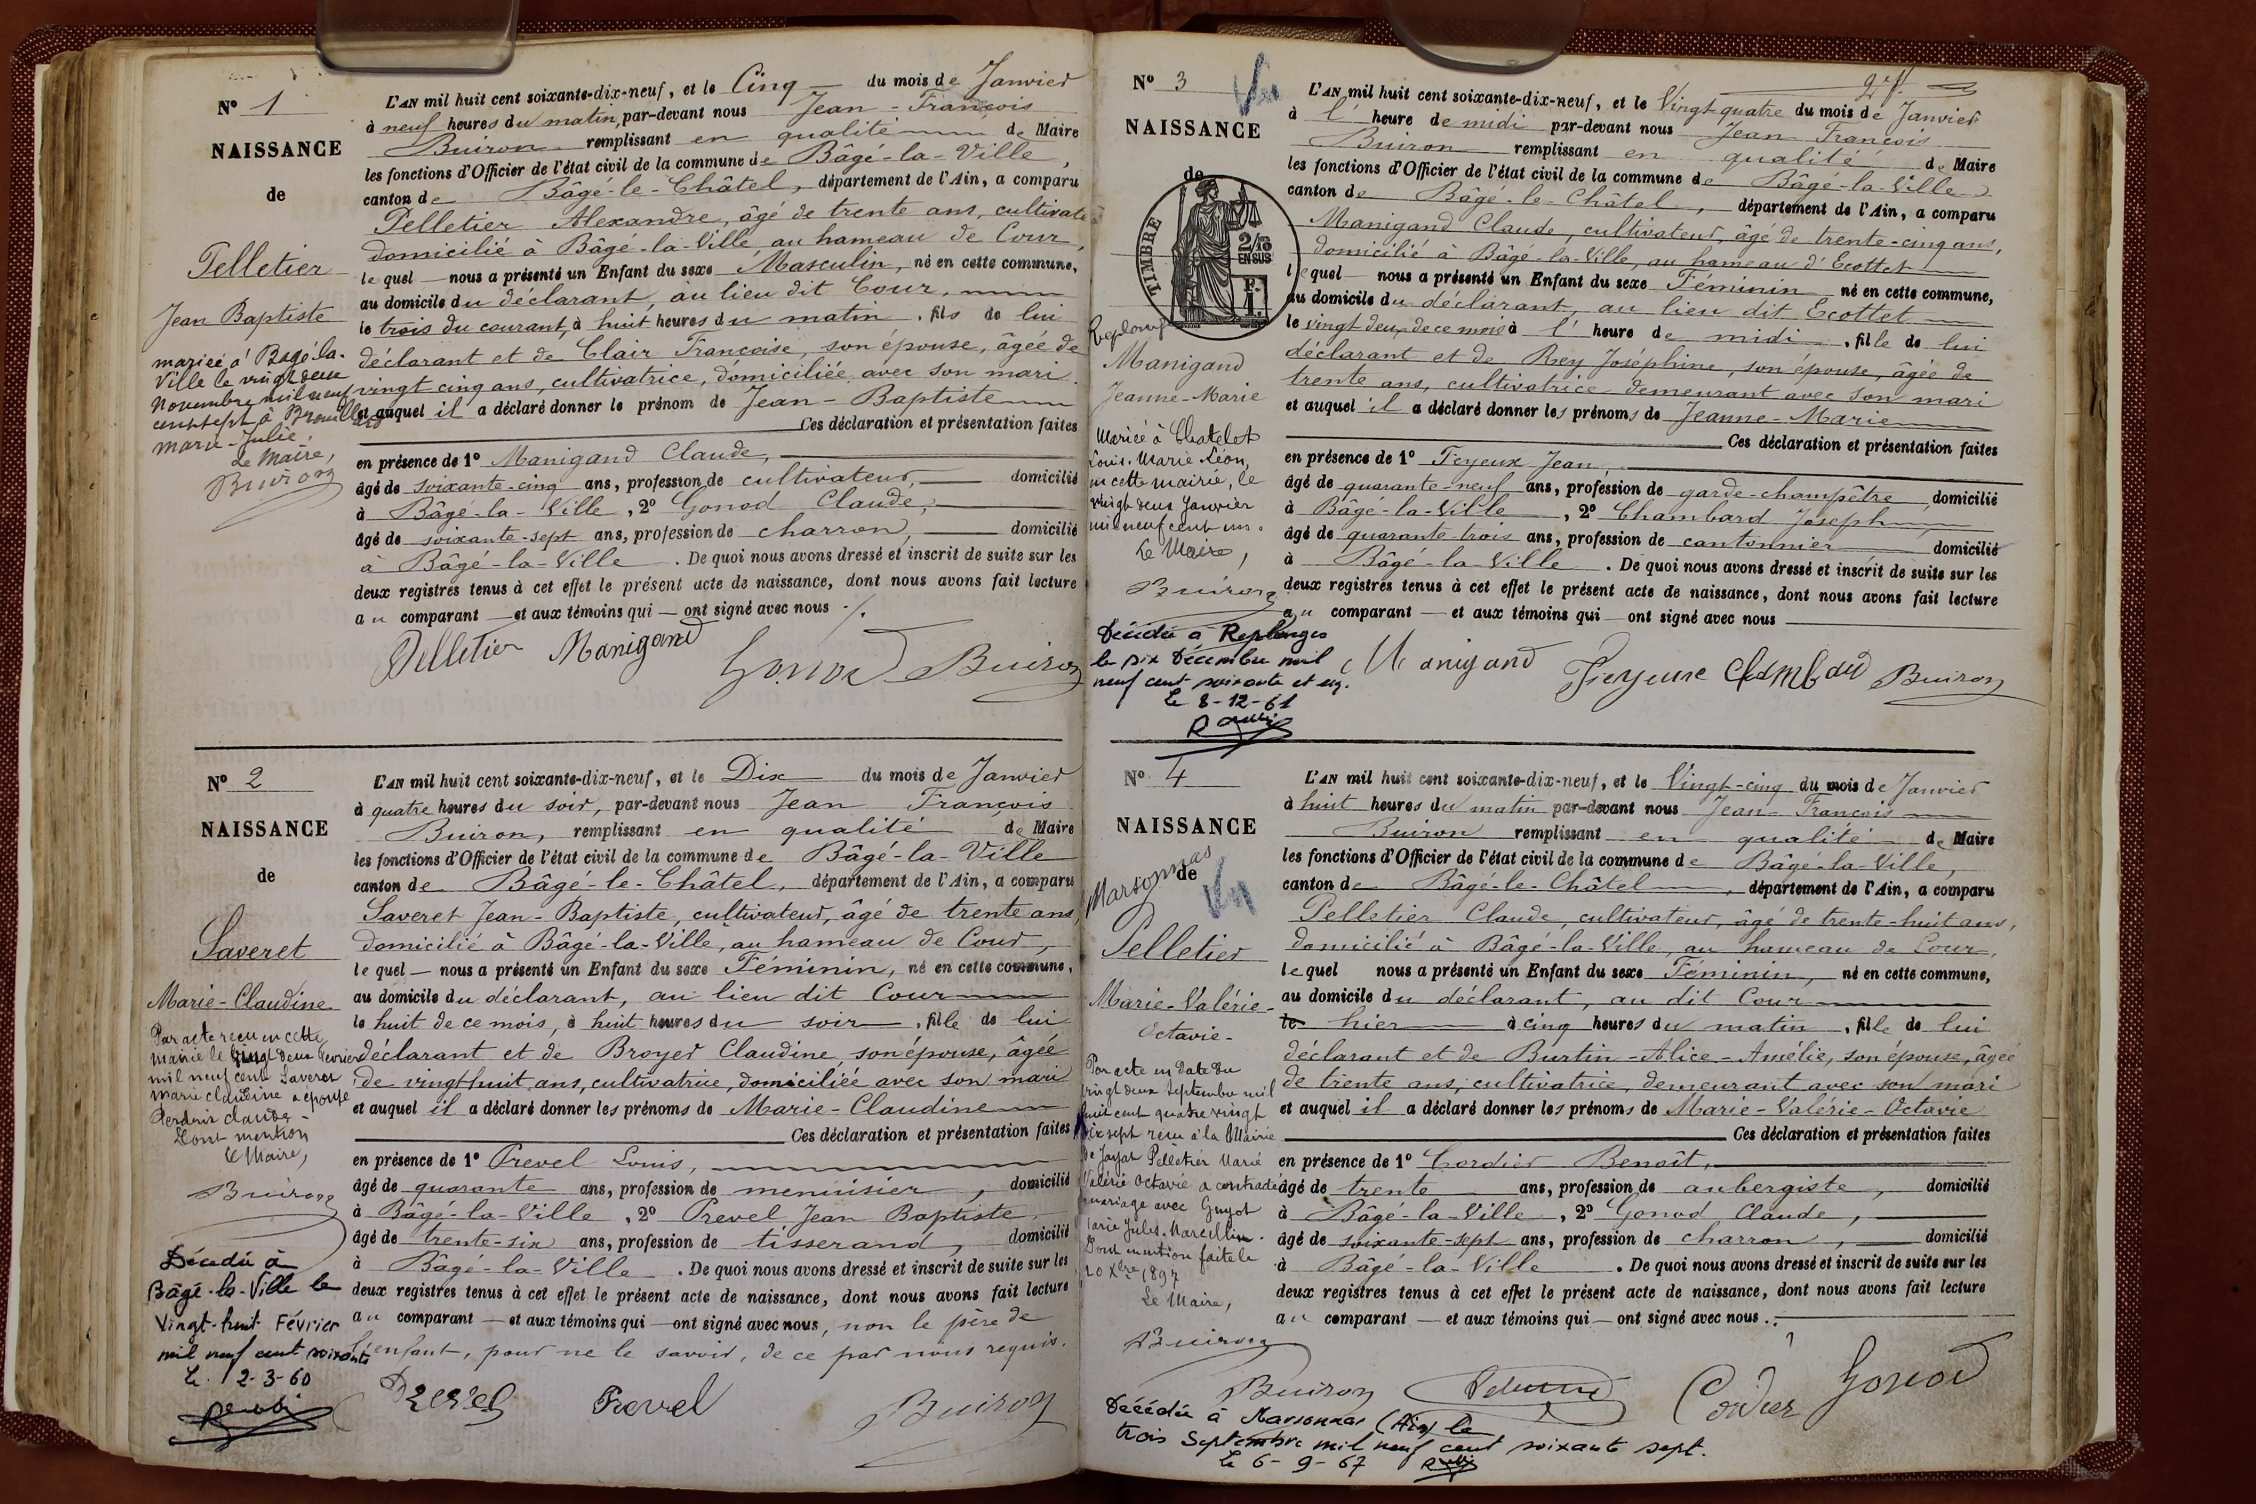 N° 1
NAISSANCE
de
Pelletier
Jean Baptiste
mariée à Bagé-la-
Ville le vingt deux
novembre mil neuf
cent sept à Brouillard
Marie-Julie,
Le Maire,
Buiron
L'AN mil huit cent soixante-dix-neuf, et le Cinq du mois de Janvier
à neuf heures du matin, par-devant nous Jean-François
Buiron remplissant en qualité de Maire
les fonctions d'Officier de l'état civil de la commune de Bâgé-la-Ville,
canton de Bâgé-le-Châtel, département de l'Ain, a comparu
Pelletier Alexandre, âgé de trente ans, cultivateur
domicilié à Bâgé-la-Ville au hameau de Cour,
lequel nous a présenté un Enfant du sexe Masculin, né en cette commune,
au domicile du déclarant, au lieu dit Cour,
le trois du courant, à huit heures du matin, fils de lui
déclarant et de Clair Françoise, son épouse, âgée de
vingt cinq ans, cultivatrice, domiciliée avec son mari
et auquel il a déclaré donner le prénom de Jean-Baptiste
Ces déclaration et présentation faites
en présence de 1° Manigand Claude,
âgé de soixante-cinq ans, profession de cultivateur, domicilié
à Bâgé-la-Ville, 2° Gonod Claude,
âgé de soixante-sept ans, profession de charron, domicilié
à Bâgé-la-Ville. De quoi nous avons dressé et inscrit de suite sur les
deux registres tenus à cet effet le présent acte de naissance, dont nous avons fait lecture
au comparant et aux témoins qui ont signé avec nous ./.
Pelletier Manigand Gonod Buiron
N° 2
NAISSANCE
de
Saveret
Marie-Claudine
Par acte reçu en cette
mairie le vingt deux fevrier
mil neuf cent Saveret
marie claudine a épousé
Perdrix claude
Dont mention
Le Maire,
Buiron
Décédée à
Bâgé-la-Ville le
Vingt-huit Février
mil neuf cent soixante
Le 2-3-60
L'AN mil huit cent soixante-dix-neuf, et le Dix du mois de Janvier
à quatre heures du soir, par-devant nous Jean François
Buiron, remplissant en qualité de Maire
les fonctions d'Officier de l'état civil de la commune de Bâgé-la-Ville
canton de Bâgé-le-Châtel, département de l'Ain, a comparu
Saveret Jean-Baptiste, cultivateur, âgé de trente ans,
domicilié à Bâgé-la-Ville, au hameau de Cour,
lequel nous a présenté un Enfant du sexe Féminin, né en cette commune,
au domicile du déclarant, au lieu dit Cour
le huit de ce mois, à huit heures du soir, fille de lui
déclarant et de Broyer Claudine, son épouse, âgée
de vingt huit ans, cultivatrice, domiciliée avec son mari
et auquel il a déclaré donner les prénoms de Marie-Claudine
Ces déclaration et présentation faites
en présence de 1° Prevel Louis,
âgé de quarante ans, profession de menuisier, domicilié
à Bâgé-la-Ville, 2° Prevel Jean Baptiste
âgé de trente-six ans, profession de tisserand, domicilié
à Bâgé-la-Ville. De quoi nous avons dressé et inscrit de suite sur les
deux registres tenus à cet effet le présent acte de naissance, dont nous avons fait lecture
au comparant et aux témoins qui ont signé avec nous, non le père de
l'enfant, pour ne le savoir, de ce par nous requis.
Prevel Prevel Buiron
27
N° 3
Vu
NAISSANCE
de
TIMBRE
2/10 EN SUS
F. 1.
Replonges
Manigand
Jeanne-Marie
Mariée à Chatelet
Louis-Marie Léon,
en cette mairie, le
vingt deux Janvier
mil neuf cent un.
Le Maire,
Buiron
Décédée à Replonges
le six Décembre mil
neuf cent soixante et un.
Le 8-12-61
L'AN mil huit cent soixante-dix-neuf, et le Vingt-quatre du mois de Janvier
à l' heure de midi par-devant nous Jean François
Buiron remplissant en qualité de Maire
les fonctions d'Officier de l'état civil de la commune de Bâgé-la-Ville
canton de Bâgé-le-Châtel, département de l'Ain, a comparu
Manigand Claude, cultivateur, âgé de trente-cinq ans,
domicilié à Bâgé-la-Ville, au hameau d'Ecottet
lequel nous a présenté un Enfant du sexe Féminin né en cette commune,
au domicile du déclarant, au lieu dit Ecottet
le vingt deux de ce mois à l' heure de midi, fille de lui
déclarant et de Rey Joséphine, son épouse, âgée de
trente ans, cultivatrice demeurant avec son mari
et auquel il a déclaré donner les prénoms de Jeanne-Marie
Ces déclaration et présentation faites
en présence de 1° Feyeux Jean,
âgé de quarante-neuf ans, profession de garde-champêtre, domicilié
à Bâgé-la-Ville, 2° Chambard Joseph,
âgé de quarante trois ans, profession de cantonnier domicilié
à Bâgé-la-Ville. De quoi nous avons dressé et inscrit de suite sur les
deux registres tenus à cet effet le présent acte de naissance, dont nous avons fait lecture
au comparant et aux témoins qui ont signé avec nous
Manigand Feyeux Chambard Buiron
N° 4
NAISSANCE
de
Marsonnas
Vu
Pelletier
Marie-Valérie-
Octavie-
Par acte en date du
vingt deux septembre mil
huit cent quatre vingt
dix sept reçu à la Mairie
de Jayat Pelletier Marie
Valérie Octavie a contracté
mariage avec Guyot
Marie Jules-Marcellin.
Dont mention faite le
20 Xbre 1897
Le Maire,
Buiron
L'AN mil huit cent soixante-dix-neuf, et le Vingt-cinq du mois de Janvier
à huit heures du matin par-devant nous Jean-François
Buiron remplissant en qualité de Maire
les fonctions d'Officier de l'état civil de la commune de Bâgé-la-Ville,
canton de Bâgé-le-Châtel, département de l'Ain, a comparu
Pelletier Claude, cultivateur, âgé de trente-huit ans,
domicilié à Bâgé-la-Ville, au hameau de Cour,
lequel nous a présenté un Enfant du sexe Féminin, né en cette commune,
au domicile du déclarant, au dit Cour
le hier à cinq heures du matin, fille de lui
déclarant et de Burtin-Alice-Amélie, son épouse, âgée
de trente ans, cultivatrice, demeurant avec son mari
et auquel il a déclaré donner les prénoms de Marie-Valérie-Octavie
Ces déclaration et présentation faites
en présence de 1° Cordier Benoît,
âgé de trente ans, profession de aubergiste, domicilié
à Bâgé-la-Ville, 2° Gonod Claude,
âgé de soixante-sept ans, profession de charron, domicilié
à Bâgé-la-Ville. De quoi nous avons dressé et inscrit de suite sur les
deux registres tenus à cet effet le présent acte de naissance, dont nous avons fait lecture
au comparant et aux témoins qui ont signé avec nous.
Buiron Cordier Gonod
Décédée à Marsonnas (Ain) le
trois Septembre mil neuf cent soixante sept.
Le 6-9-67